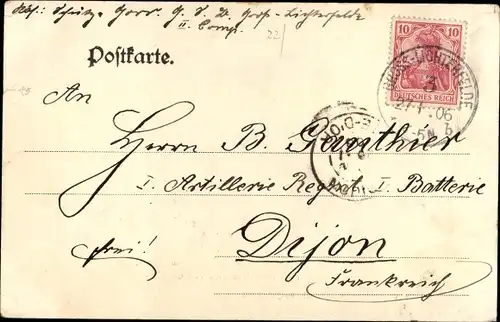 Abs: Schütze Gorr. G. S. B. Groß-Lichterfelde
II. Comp.
22
Postkarte.
10 10
DEUTSCHES REICH
GROSS-LICHTERFELDE
06
5-6N.
b
An
Herrn B. Gauthier
I. Artillerie Regmt I. Batterie
frei!
Dijon
Frankreich